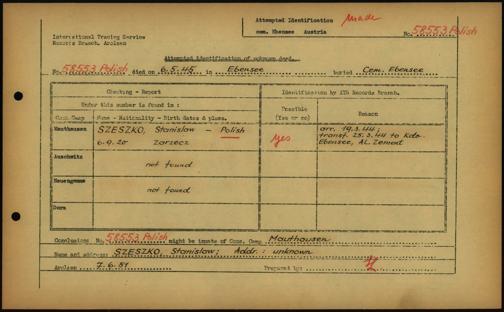 Attempted Identification made
International Tracing Service
Records Branch, Arolsen
cem. Ebensee Austria No. 58553 Polish
Attempted Identification of unknown dead.
No. 58553 Polish died on 6.5.45 in Ebensee buried Cem. Ebensee
Checking - Report Identification by ITS Records Branch.
Under this number is found in: Possible Reason
Conc. Camp Name - Nationality - Birth dates & place. (Yes or no)
Mauthausen SZESZKO, Stanislaw - Polish yes arr. 19.3.44;
6.9.20 Zarzecz transf. 25.3.44 to Kdo.
Ebensee, AL Zement
Auschwitz not found
Neuengamme not found
Dora
Conclusion: No. 58553 Polish might be inmate of Conc. Camp Mauthausen
Name and address: SZESZKO, Stanislaw; Addr.: unknown
Arolsen 7.6.51 Prepared by: